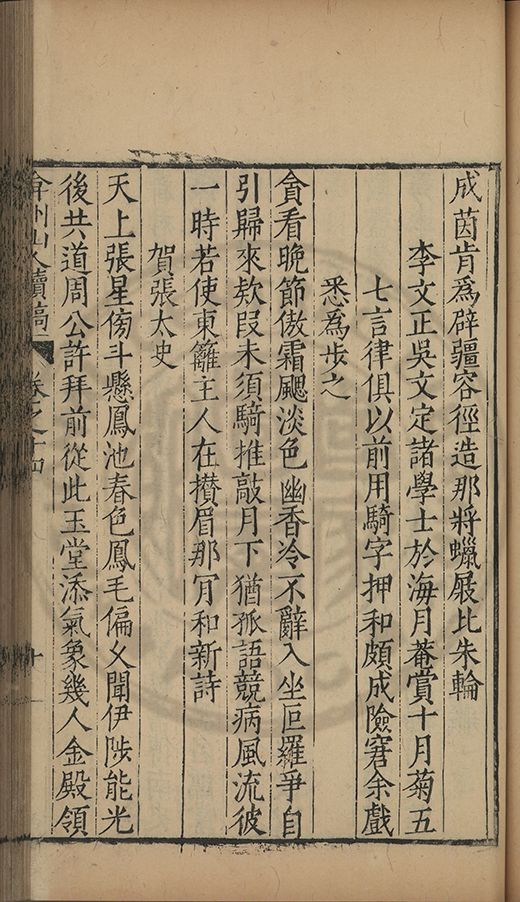 成茵肯爲辟疆容徑造那將蠟屐比朱輪
李文正吳文定諸學士於海月菴賞十月菊五
七言律俱以前用騎字押和頗成險窘余戲
悉爲步之
貪看晚節傲霜颸淡色幽香冷不辭入坐叵羅爭自
引歸來欵段未須騎推敲月下猶孤語競病風流彼
一時若使東籬主人在攅眉那肎和新詩
賀張太史
天上張星傍斗懸鳳池春色鳳毛偏乆聞伊陟能光
後共道周公許拜前從此玉堂添氣象幾人金殿領
弇州山人續稿
卷之十四
十